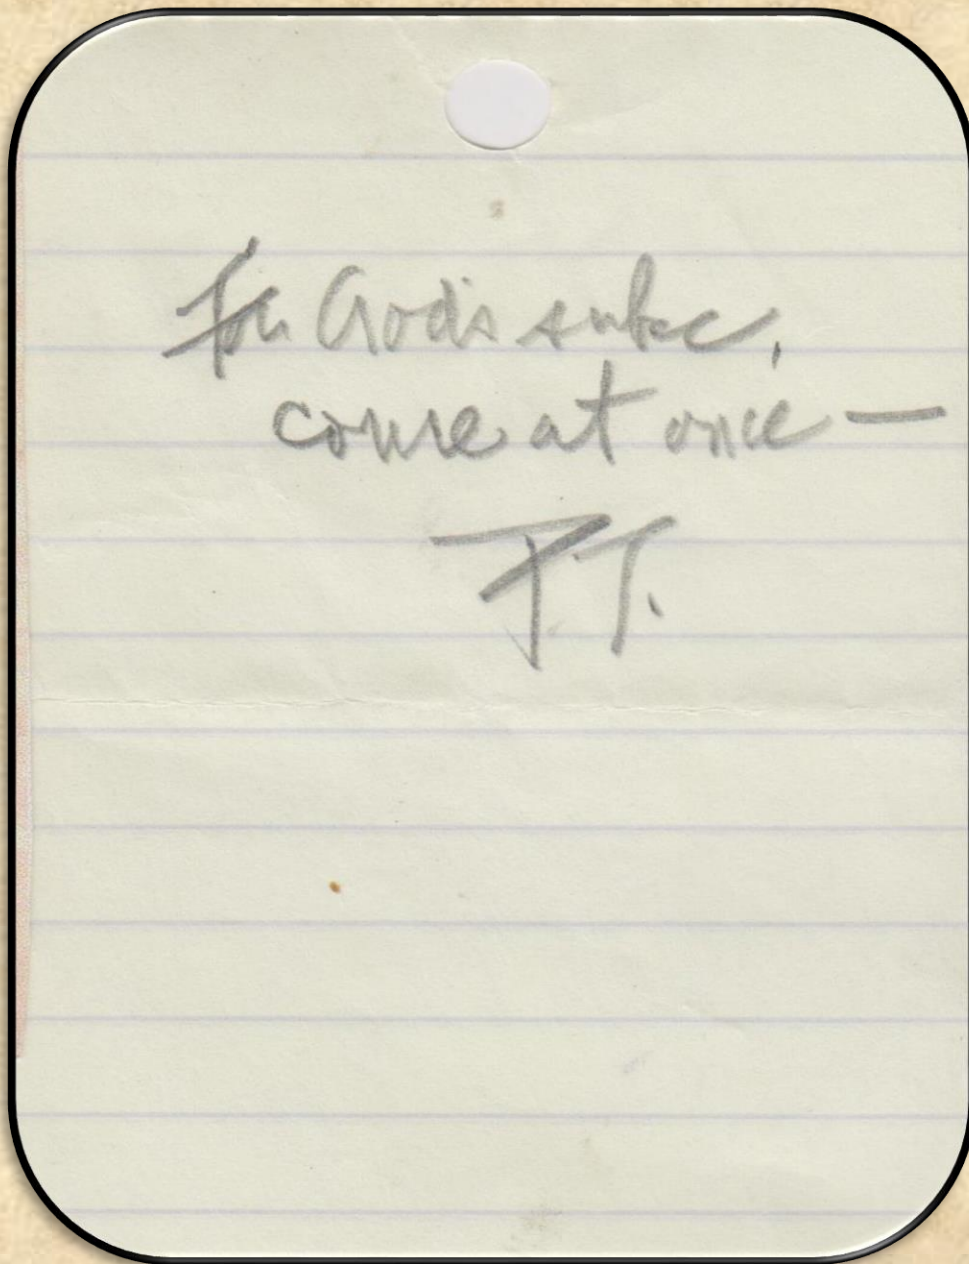 For God's sake,
come at once —
P.T.